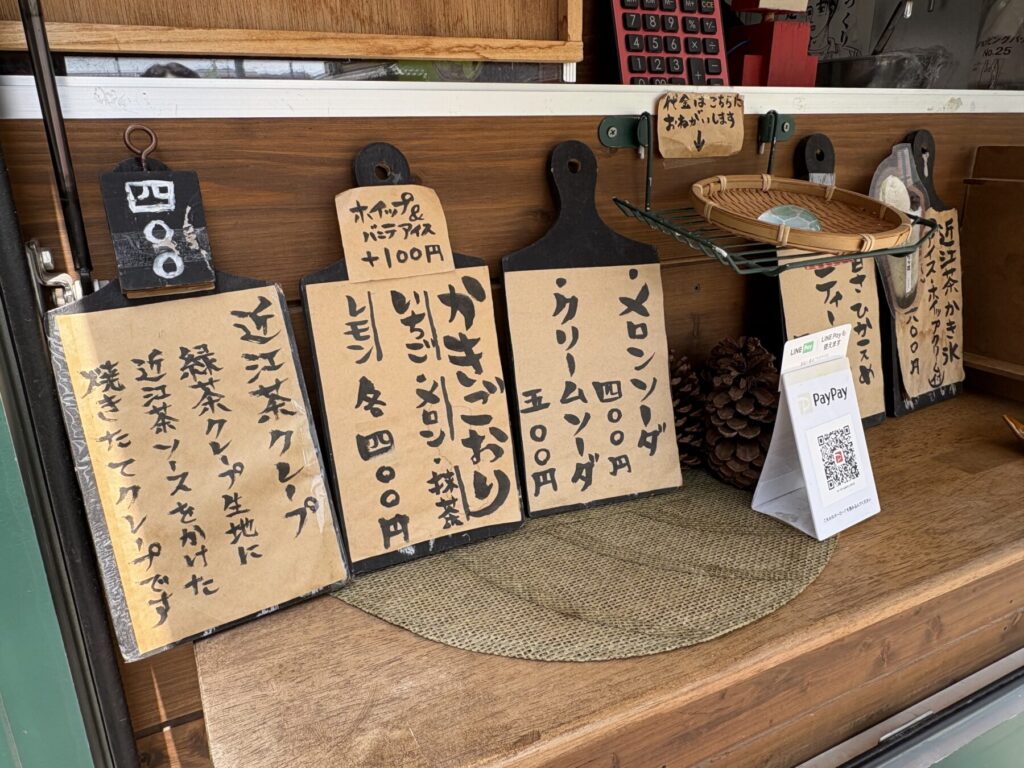 四〇〇
近江茶クレープ
緑茶クレープ生地に
近江茶ソースをかけた
焼きたてクレープです
ホイップ&
バニラアイス
+100円
かきごおり
いちご・メロン・抹茶
レモン
各四〇〇円
・メロンソーダ
四〇〇円
・クリームソーダ
五〇〇円
代金はこちらに
おねがいします
↓
甘さひかえめ
ティー
近江茶かき氷
アイス・ホイップクリーム
八〇〇円
LINE Pay
LINE Payも
使えます
PayPay
No.25
7
8
9
÷
4
5
6
×
1
2
3
-